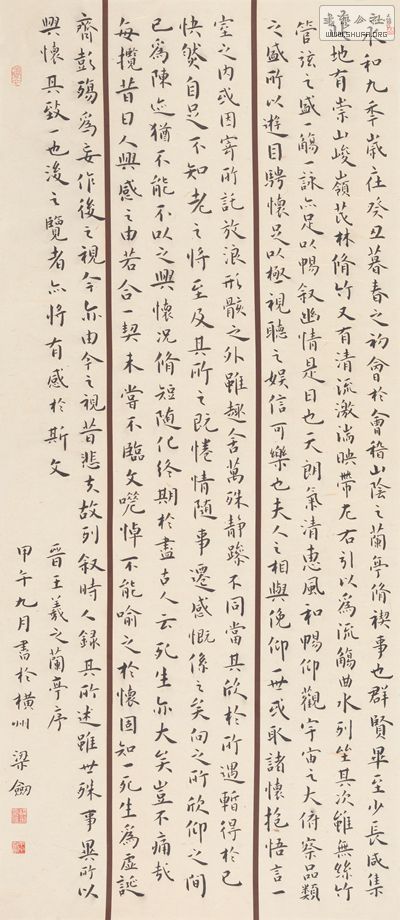 永和九秊歲在癸丑暮春之初會於會稽山陰之蘭亭脩禊事也群賢畢至少長咸集
此地有崇山峻嶺茂林脩竹又有清流激湍映帶左右引以為流觴曲水列坐其次雖無絲竹
管弦之盛一觴一詠亦足以暢叙幽情是日也天朗氣清惠風和暢仰觀宇宙之大俯察品類
之盛所以遊目騁懷足以極視聽之娛信可樂也夫人之相與俛仰一世或取諸懷抱悟言一
室之內或因寄所託放浪形骸之外雖趣舍萬殊靜躁不同當其欣於所遇暫得於己
怏然自足不知老之將至及其所之既惓情隨事遷感慨係之矣向之所欣仰之間
已為陳迹猶不能不以之興懷況脩短隨化終期於盡古人云死生亦大矣豈不痛哉
每攬昔日人興感之由若合一契未嘗不臨文嗟悼不能喻之於懷固知一死生為虛誕
齊彭殤為妄作後之視今亦由今之視昔悲夫故列叙時人錄其所述雖世殊事異所以
興懷其致一也後之覽者亦將有感於斯文
晉王羲之蘭亭序
甲午九月書於橫州 梁劍